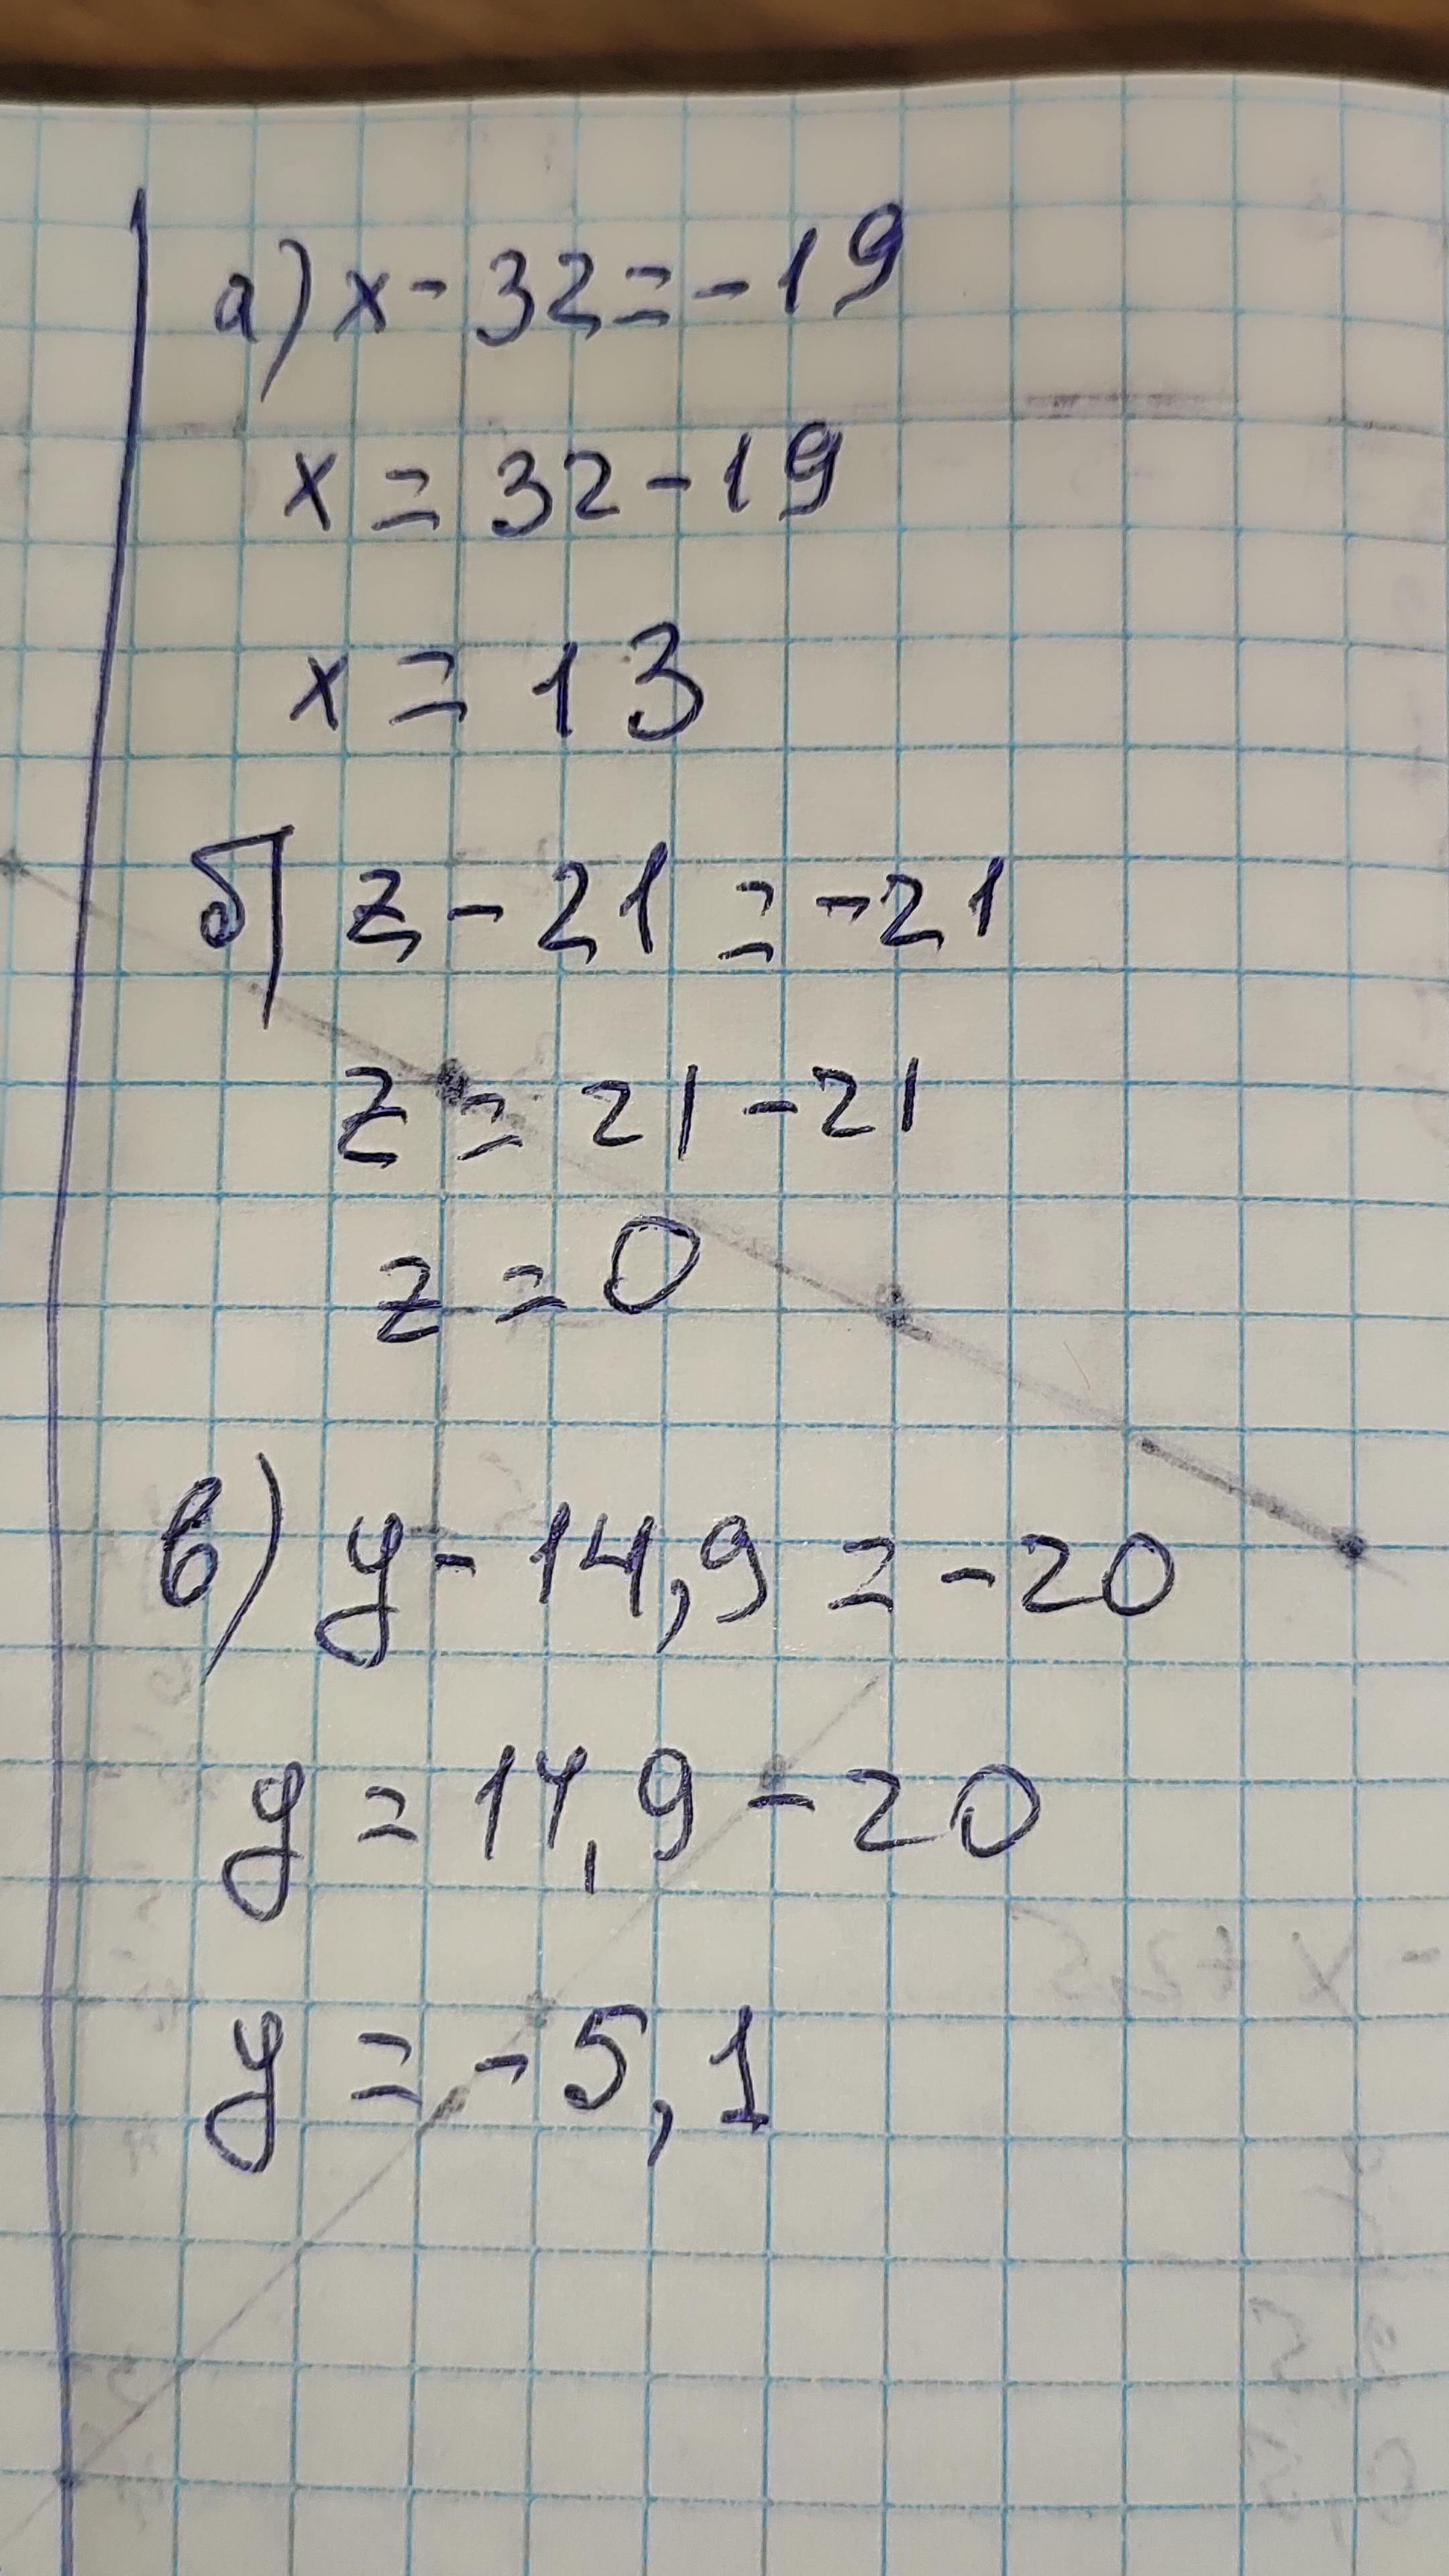 а) x - 32 = - 19
x = 32 - 19
x = 13
б) z - 21 = - 21
z = 21 - 21
z = 0
в) y - 14,9 = - 20
y = 14,9 - 20
y = - 5,1